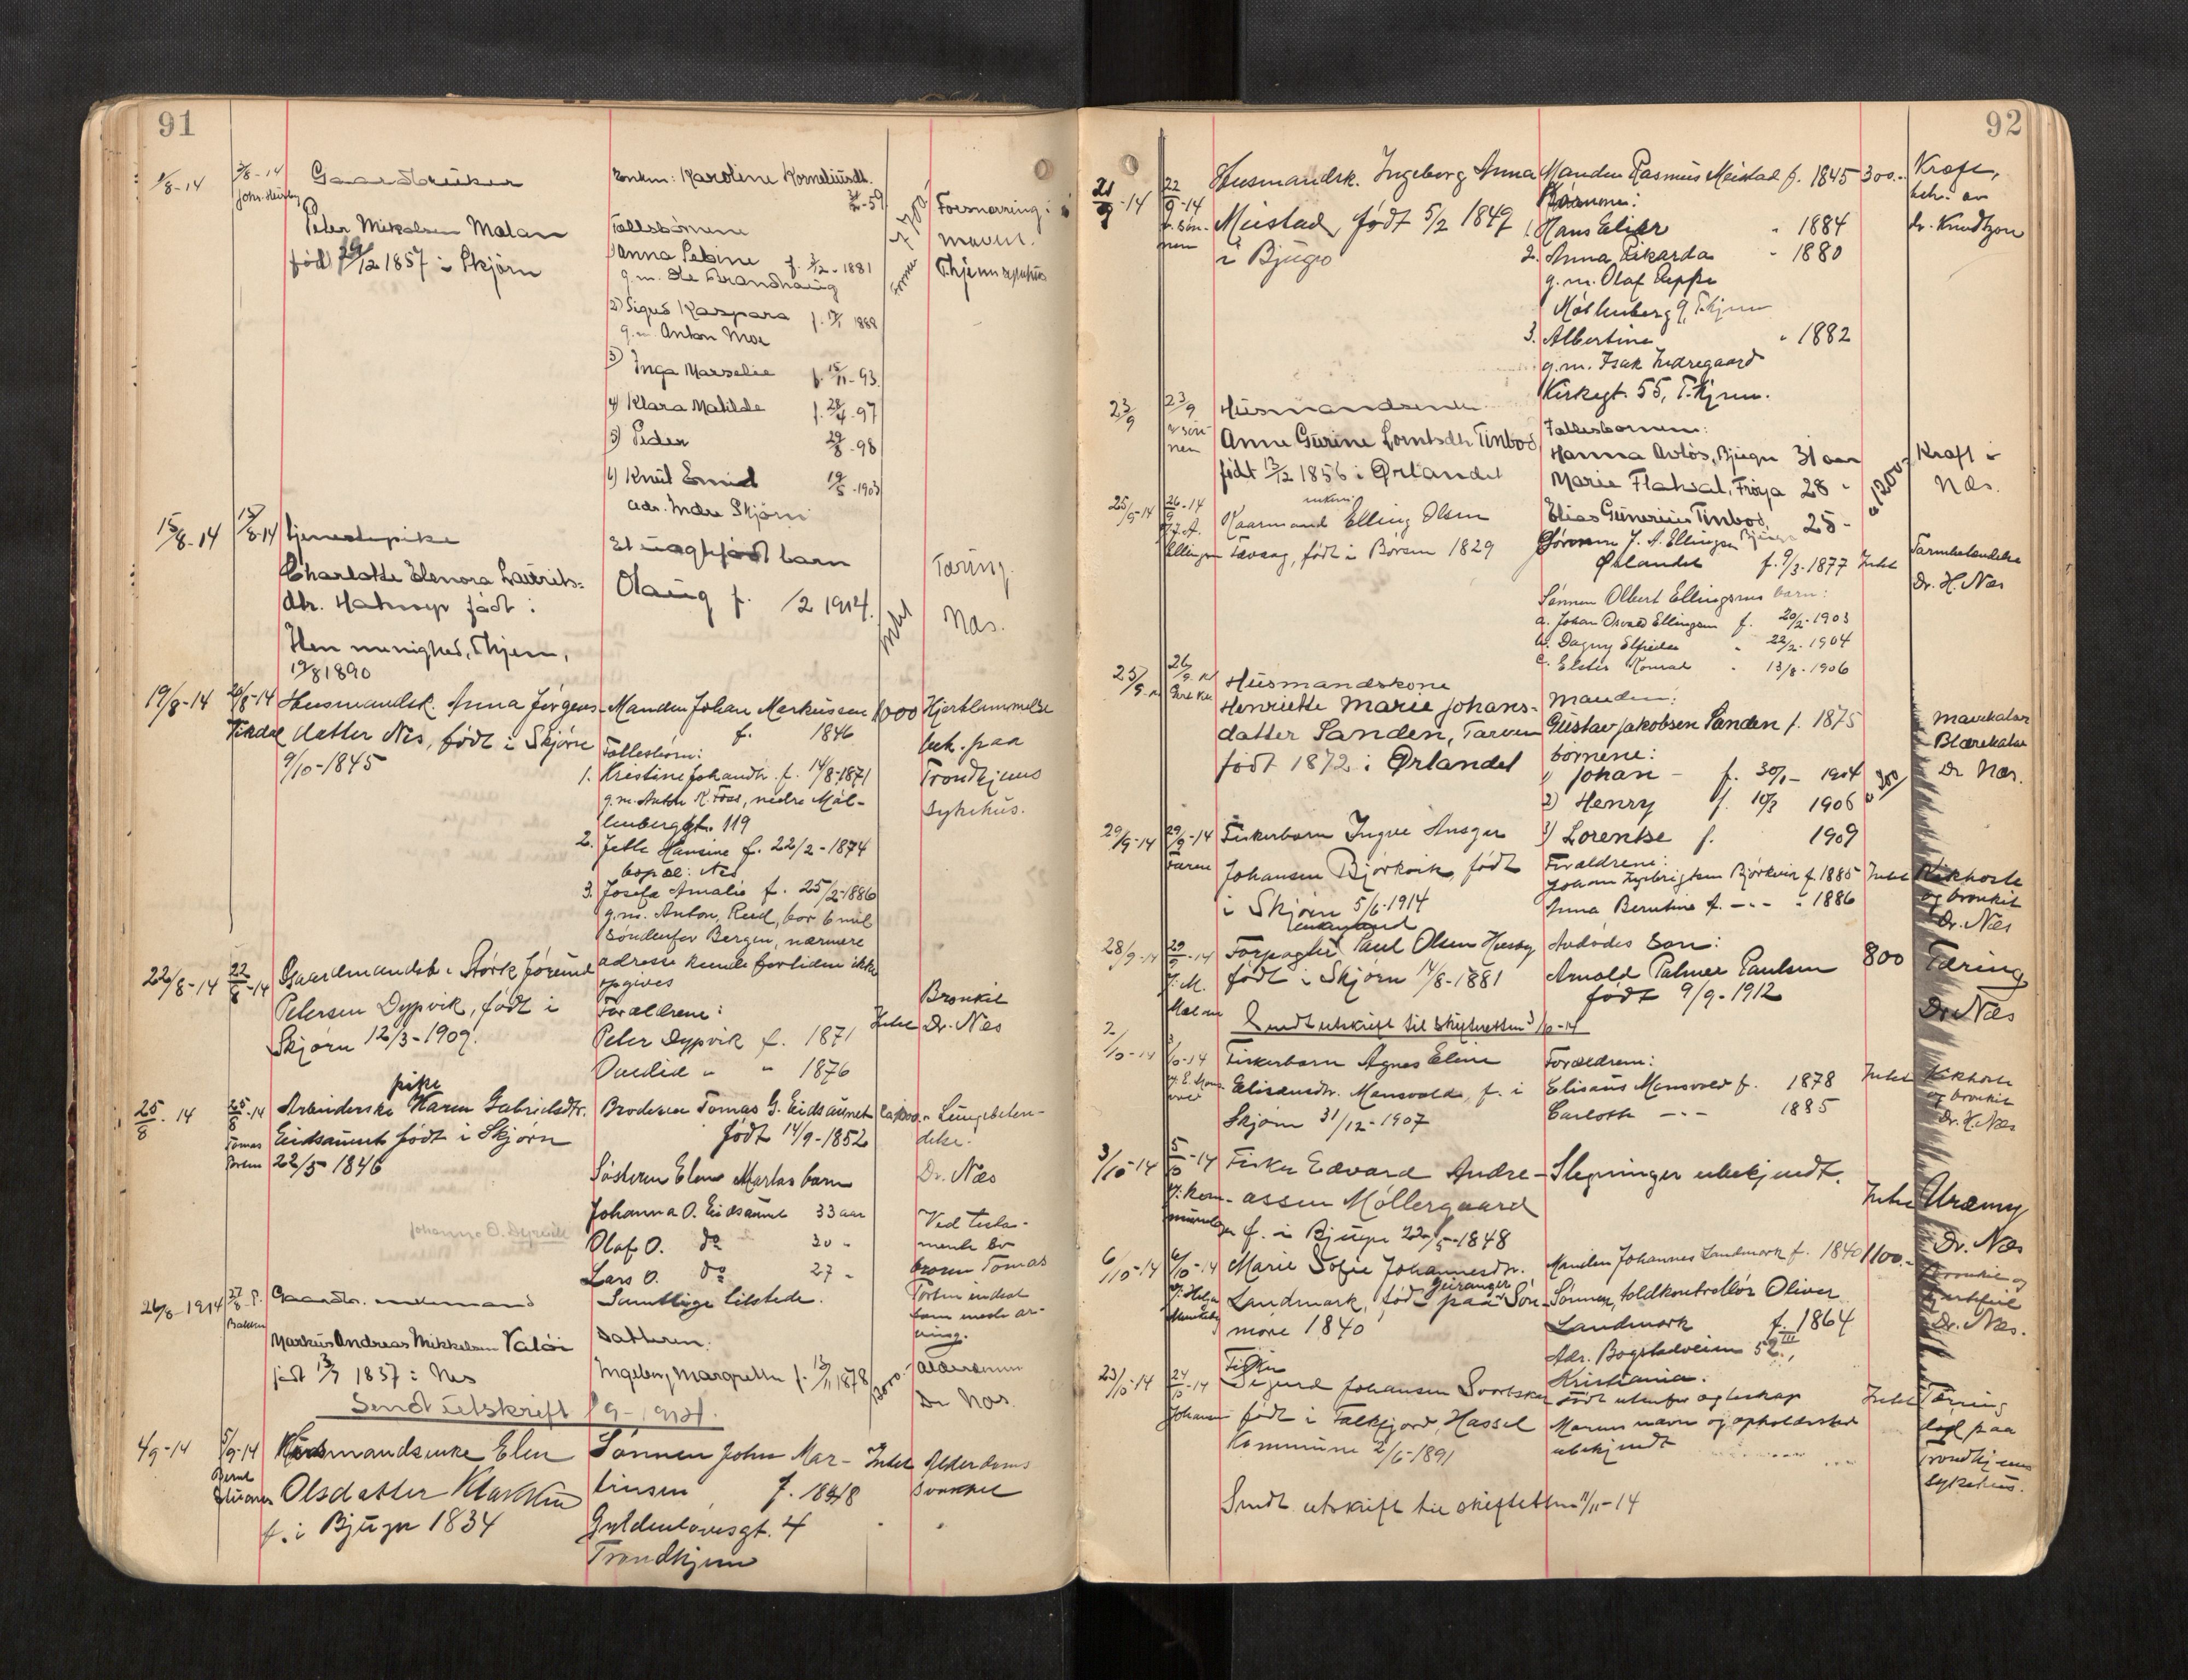 91
1/8-14
3/8-14
Gaardbruker
Enkm: Karoline Korneliusdt.
Peter Mikalsen Malan
Fællesbørnene
Forsnævring i
maven.
født 29/12 1857 i Skjørn
Anna Sebine f. 3/12-1881
g.m. Ole Brandhaug
2) Sigrid Kaspara f. 1888
g.m. Anton Moe
3) Inga Marselie f. 15/11-93.
4) Klara Matilde f. 28/4-97
5) Peder 29/8-98
6) Knut Emil 19/5-1903
adr. Indre Skjørn
15/8-14
15/8-14
tjenestepike
Et uægtefødt barn
Charlotte Elenora Laurits-
Olaug f. /2 1914.
Intet
Tæring.
Næs.
født i
Ilen menighed, Thjem,
19/8 1890
19/8-14
20/8-14
Husmandsk. Anna Jørgens-
datter Nes, født i Skjørn
9/10-1845
Manden Johan Markussen
f. 1846
1000
Hjertelammelse
beh. paa
Trondhjems
sykehus.
Fællesbørn:
1. Kristine Johandtr. f. 14/8-1871
g.m. K. Foss, nedre Møl-
lenberggt. 119
2. Jette Hansine f. 22/2-1874
bopæl: Nes
3. Josefa Amalie f. 25/2-1886
g.m. Anton Reed, bor 6 mil
søndenfor Bergen, nærmere
adresse kunde fortiden ikke
opgives
22/8-14
22/8-14
Petersen Dypvik, født i
Skjørn 12/3-1909.
Forældrene:
Peter Dypvik f. 1871
" " 1876
Intet
Bronkit
Dr. Næs
25/8.14
25/8-14
Tomas
pike
Arbeiderske Karen Gabrielsdtr.
Eidsaunet født i Skjørn
22/5 1846
Broderen Tomas G. Eidsaunet
født 14/9-1852
Lungebeten-
delse.
Dr. Næs
Søsteren Elen Martas barn
Johanna O. Eidsaune 33 aar
Olaf O. do 30 "
Lars O. do 27 "
Samtlige tilstede.
Ved testa-
mente er
broren Tomas
26/8-1914
27/8
Markus Andreas Mikkelsen Valøi
født 13/7 1837 i Nes
Datteren:
Ingeborg Margrethe f. 13/11 1878
3000
Alderdom
Dr Næs.
Sendt utskrift /9-1914.
4/9-14
5/9-14
Bernt
Olsdatter Klakken
f. i Bjugn 1834
Sønnen John Mar-
tinsen f. 1848
Gyldenløvesgt. 4
Trondhjem
Intet
Alderdoms
svakhet
92
21/9-14
22/9-14
Husmandsk. Ingeborg Anna
Meistad, født 5/2 1849
i Bjugn
Manden Rasmus Meistad f. 1845
300.-
Kræft,
beh. av
dr. Knudtzon
Børnene:
1. Hans Elier " 1884
2. Anna Rikarda " 1880
g.m. Olaf Reppe
Møllenberg 9, T.hjem
3. Albertine " 1882
g.m. Isak Indregaard
Kirkegt. 55, T.hjem.
23/9
23/9
Anne Gurine Lorntsdtr Tinbod
født 13/12 1856 i Ørlandet
Fællesbørnene:
Hanna Avløs, Bjugn 31 aar
Marie Flatval, Frøya 28 "
Elias Guinerius Tinbod, Bjugn 25 "
1200
Kræft
Næs.
25/9-14
26/9-14
Kaarmand Elling Olsen
Tævaag, født i Børsen 1829
Sønnen J. A. Ellingsen
Ørlandet f. 9/3-1877
Intet
Tarmbetændelse
Dr. H. Næs
Sønnen Olbert Ellingsens barn:
a. Johan Osvald Ellingsen f. 20/2-1903
b. Dagny Elfrida " 22/2-1904
c. Konrad " 13/8-1906
25/9
26/9
Husmandskone
Henriette Marie Johans-
datter Sanden, Tarven
født 1872 i Ørlandet
Manden:
Gustav Jakobsen Sanden f. 1875
børnene:
1) Johan - f. 30/1- 1904
2) Henry f. 10/3 1906
3) Lorentse f. 1909
300
Mavekatar
Blærekatar
Dr Næs.
29/9-14
29/9-14
Faren
Fiskerbarn Ingve Ansgar
Johansen Bjørkvik, født
i Skjørn 5/6-1914
Forældrene:
Johan Bjørkvik f. 1885
Anna Berntine f. -"- " 1886
Intet
Kikhoste
og bronkit
Dr. Næs
28/9-14
29/9-14
enkemand
Forpagter Paul Olsen Husby
født i Skjørn 14/8-1881
Avdødes søn:
Arnold Palmer Paulsen
født 9/9-1912
800
Tæring
Dr Næs
Sendt utskrift til skifteretten 3/10-14
2/10-14
3/10-14
Fiskerbarn Agnes Eline
Elisæusdtr. Mansvolda, f. i
Skjørn 31/12-1907
Forældrene:
Elisæus Mansvold f. 1878
-"- 1885
Intet
Kikhoste
og bronkit
Dr. H. Næs
3/10-14
5/10-14
Fisker Edvard Andre-
assen Møllergaard
f. i Bjugn 22/5-1848
Slegninger ubekjendt.
Intet
Uræmy
Dr. Næs
6/10-14
6/10-14
Marie Sofie Johannesdtr.
Landmark, født paa Søn-
Geiranger
møre 1840
Manden Johannes Landmark f. 1840
Sønnen, toldkontrollør Oliver
Landmark f. 1864
Adr. Bogstadveien 52 III,
Kristiania.
1100.-
Bronkit og
hjertefeil
Dr. Næs.
23/10-14
24/10-14
Fisker
Sigurd Johansen
født i Falkfjord, Hassel
Kommune 2/6-1891
Født utenfor egteskap
Morens navn og opholdssted
ubekjendt
Intet
Tæring
døde paa
Trondhjems
sykehus.
Sendt utskrift til skifteretten 11/11-14